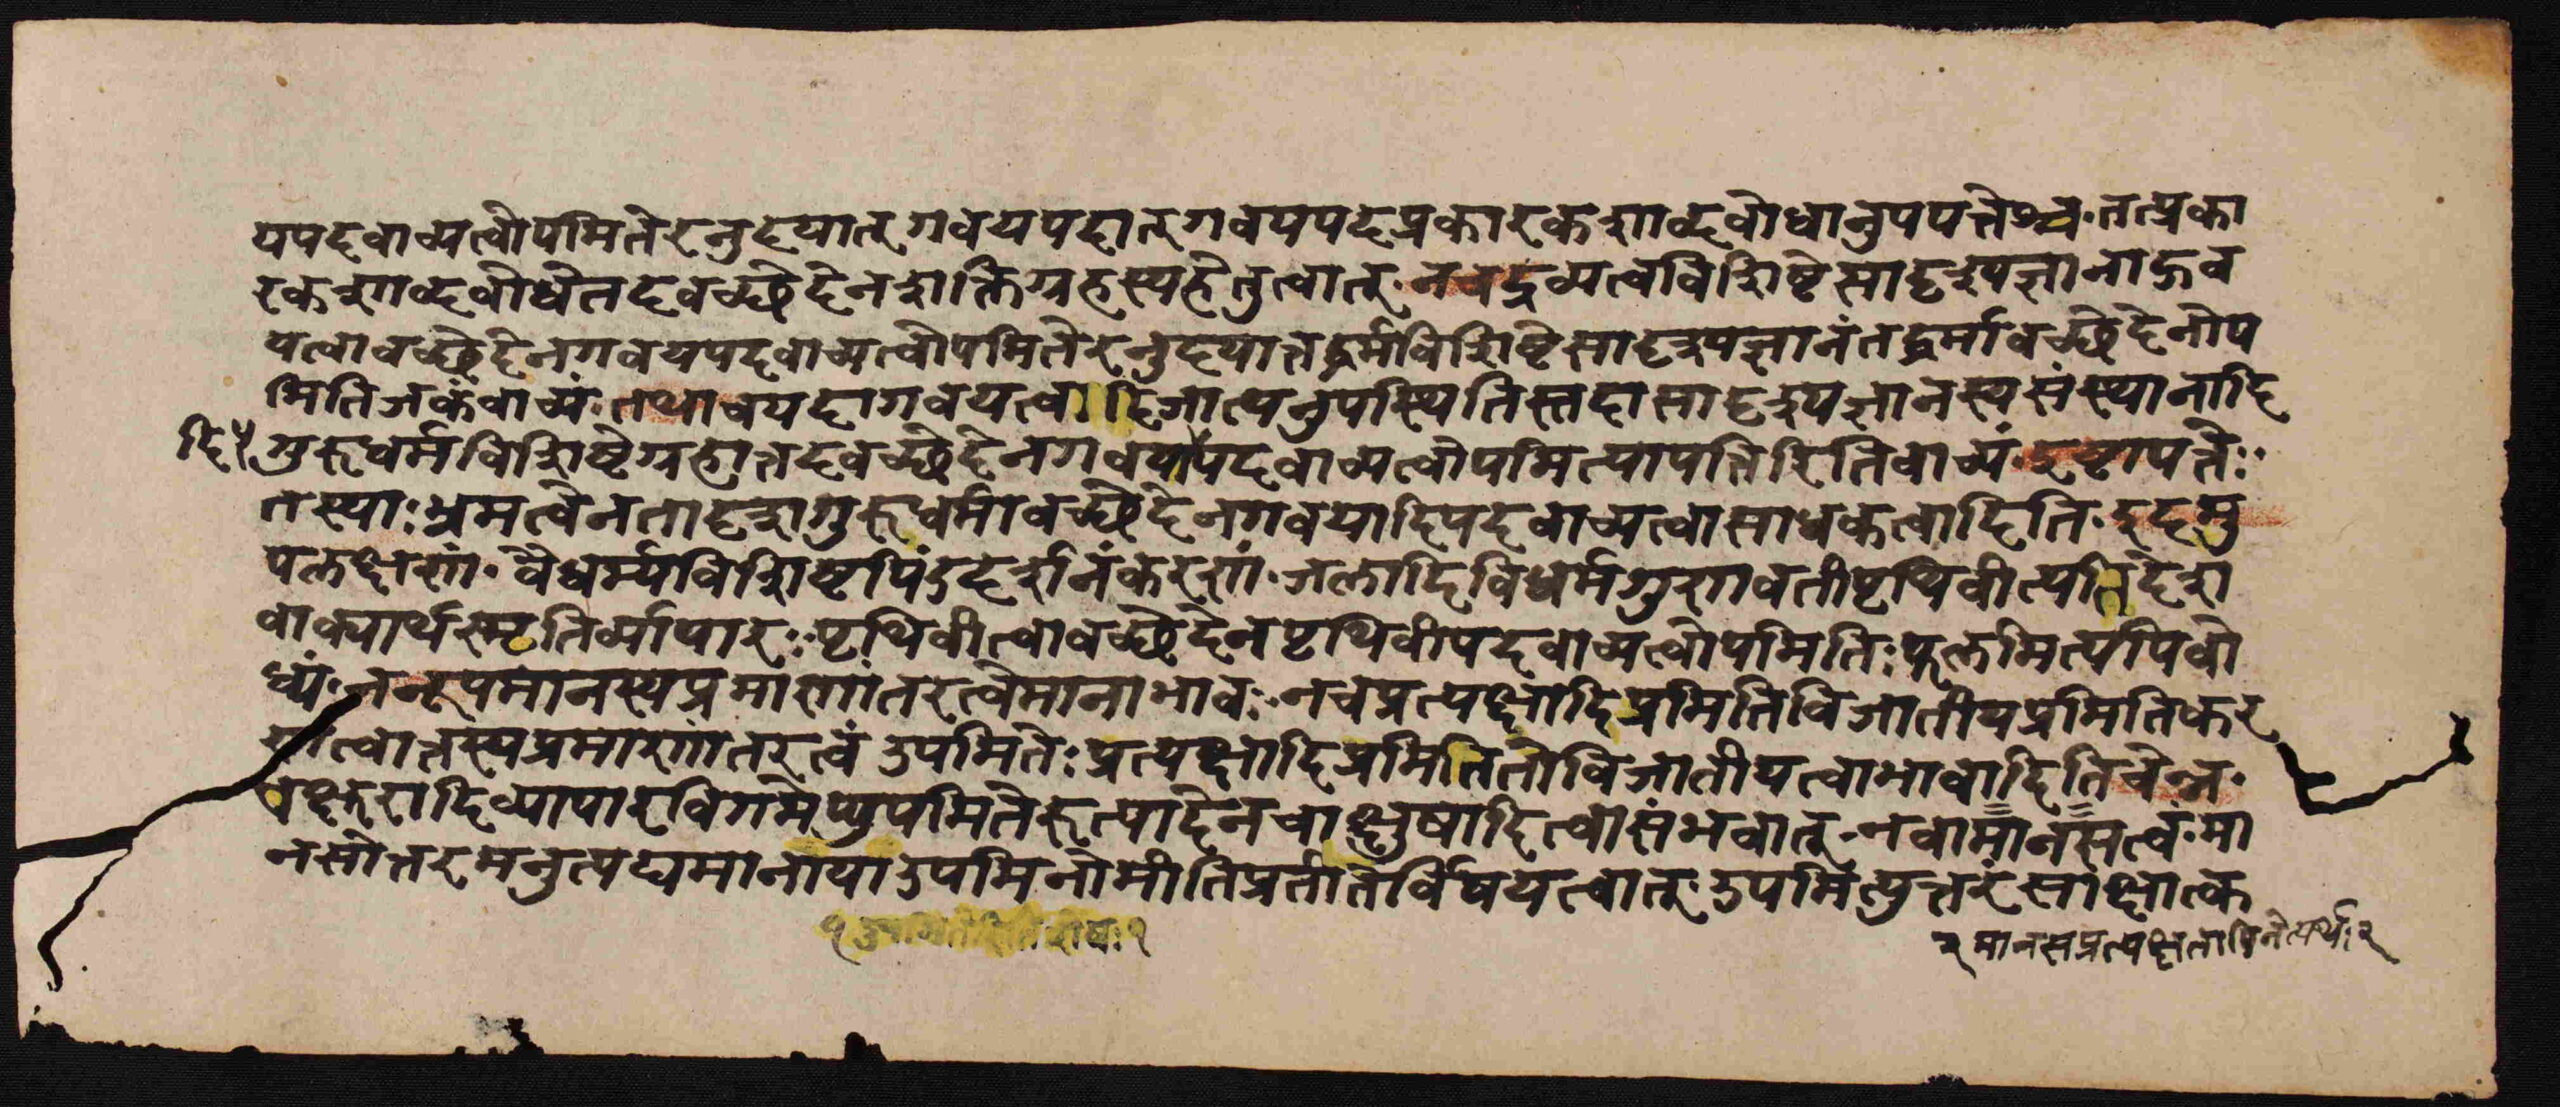 यपदवाच्यत्वोपमितेरनुदयात् गवयपदात् गवयपदप्रकारकशाब्दबोधानुपपत्तेश्च · तत्प्रका
रकशाब्दबोधे तदवच्छेदेन शक्तिग्रहस्य हेतुत्वात् · न च द्रव्यत्वविशिष्टे सादृश्यज्ञानाद्गव
यत्वावच्छेदेन गवयपदवाच्यत्वोपमितेरनुदयात्तद्धर्मविशिष्टे सादृश्यज्ञानं तद्धर्मावच्छेदेनोप
मितिजकं वाच्यं · तथा च यदा गवयत्वादिजात्यनुपस्थितिस्तदा सादृश्यज्ञानस्य संस्थानादि
दि॥ गुरूधर्मविशिष्टे ग्रहात्तदवच्छेदेन गवयापदवाच्यत्वोपमित्यापत्तिरिति वाच्यं · इष्टापत्तेः
तस्याः भ्रमत्वेन तादृशगुरूधर्मावच्छेदेन गवयादिपदवाच्यत्वासाधकत्वादिति · इदमु
पलक्षणं · वैधर्म्यविशिष्टपिंडदर्शनं करणं · जलादिविधर्मगुणवती पृथिवीत्यतिदेश
वाक्यार्थस्मृतिर्व्यापारः पृथिवीत्वावच्छेदेन पृथिवीपदवाच्यत्वोपमितिः फलमित्यपि बो
ध्यं · ननूपमानस्य प्रमाणांतरत्वे मानाभावः न च प्रत्यक्षादिप्रमितिविजातीयप्रमितिकर
णत्वात्तस्य प्रमाणांतरत्वं उपमितेः प्रत्यक्षादिप्रमितितो विजातीयत्वाभावादिति चेन्न ·
चक्षुरादिव्यापारविगमेप्युपमितेरूत्पादेन चाक्षुषादित्वासंभवात् · न वा मानसत्वं · मा
नसोत्तरमनुत्पद्यमानाया उपमिनोमीति प्रतीतेर्विषयत्वात् उपमित्युत्तरं साक्षात्क
१ उपमितेरिति शेषः १
२ मानसप्रत्यक्षतापि नेत्यर्थः २